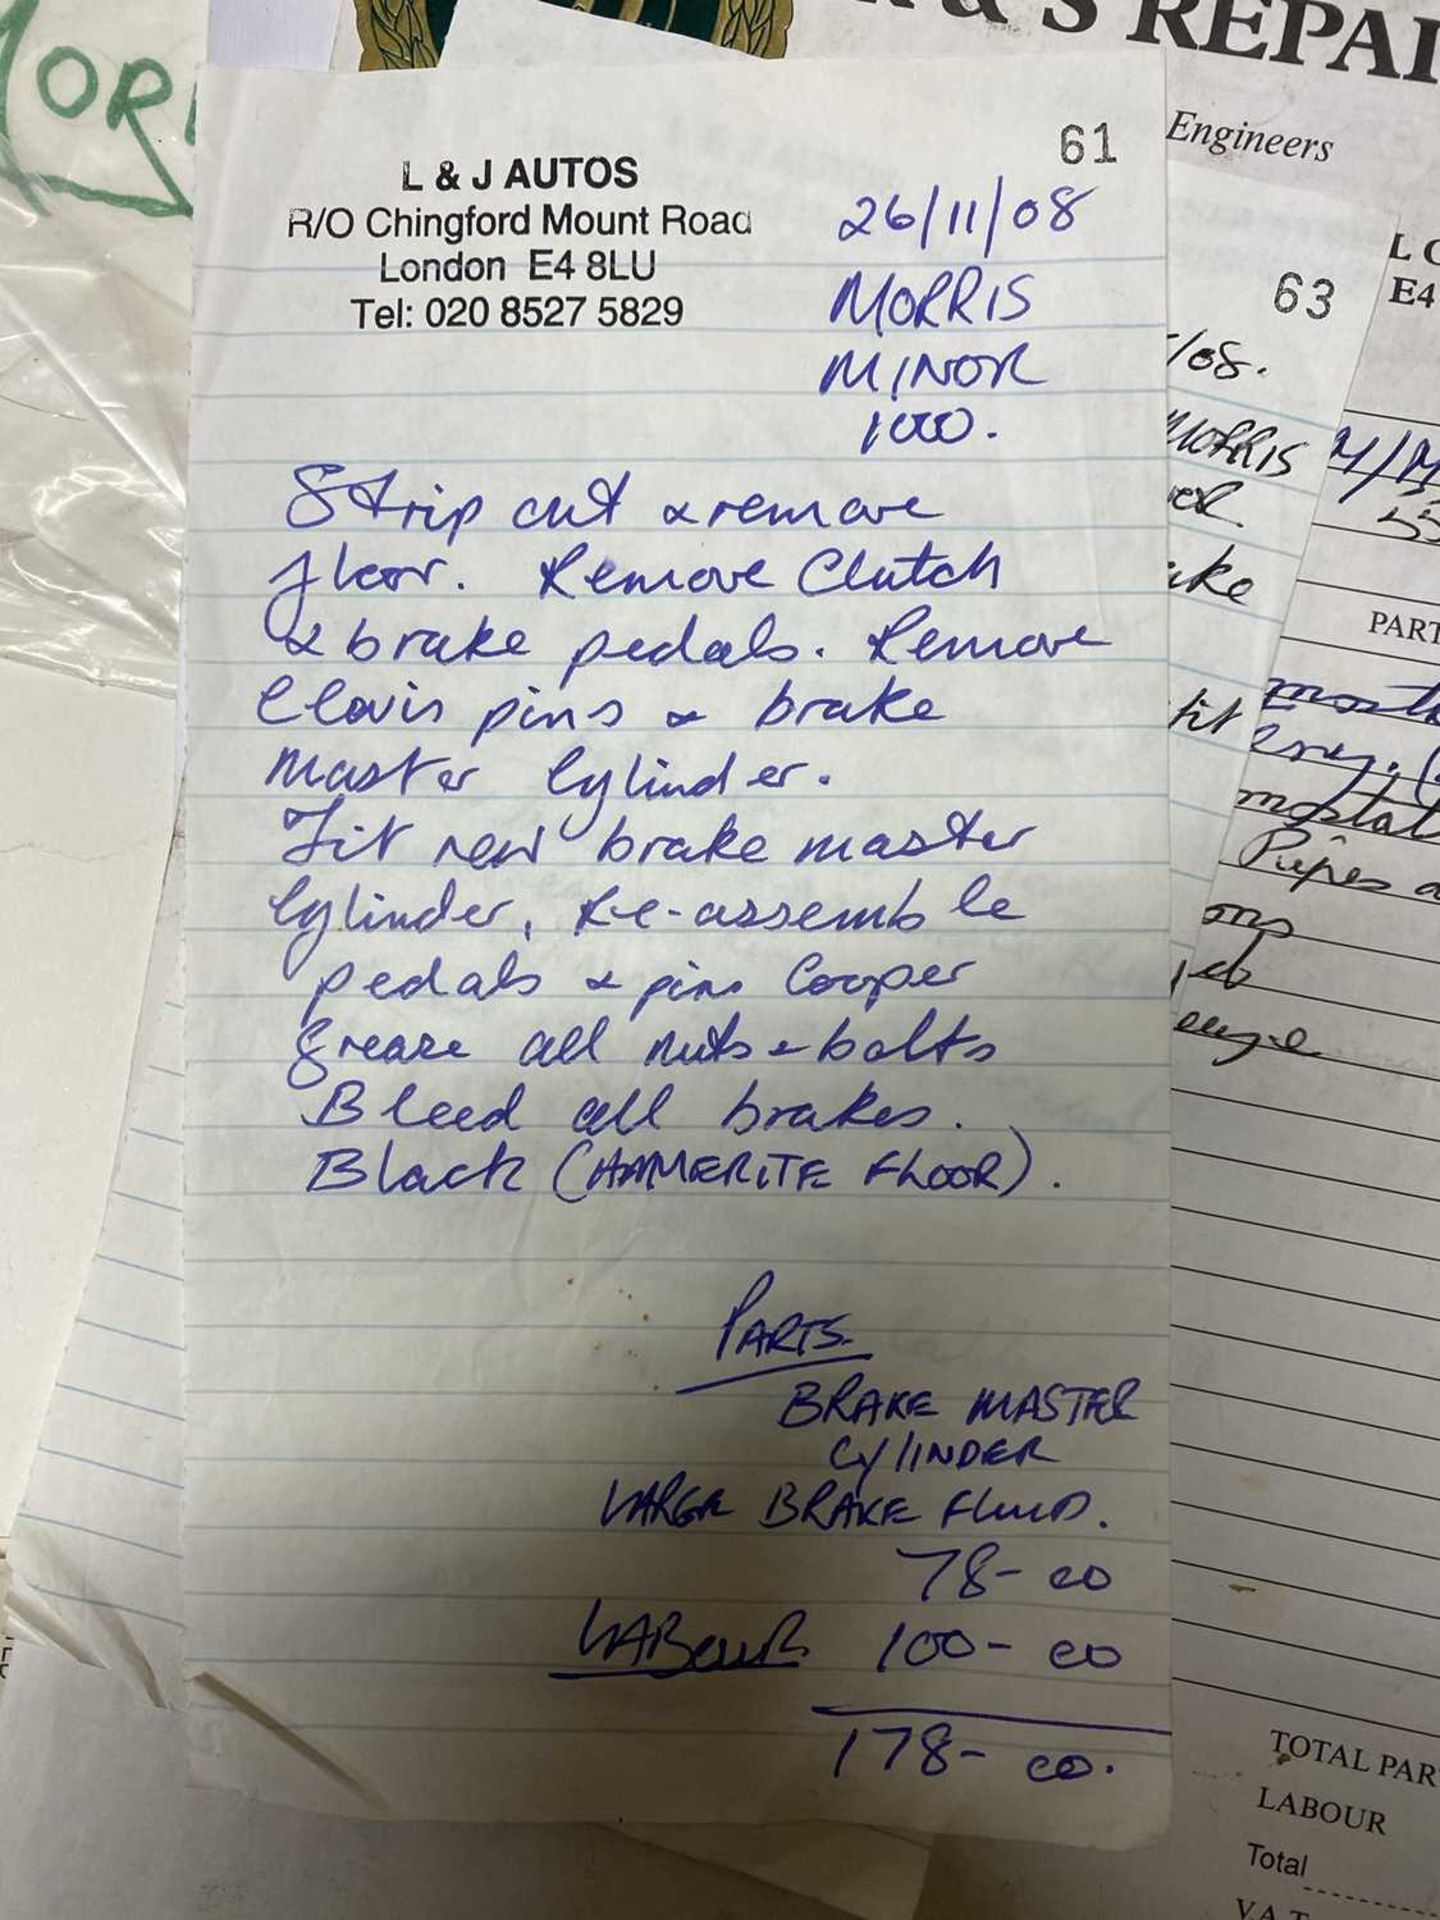 MOR
& S REPAI
Engineers
61
L & J AUTOS
R/O Chingford Mount Road
London E4 8LU
Tel: 020 8527 5829
26/11/08
MORRIS
MINOR
1000.
Strip out & remove
floor. Remove Clutch
& brake pedals. Remove
Clevis pins & brake
master Cylinder.
Fit new brake master
Cylinder, Re-assemble
pedals & pins Cooper
grease all nuts & bolts
Bleed all brakes.
Black (HAMERITE FLOOR).
PARTS
BRAKE MASTER
CYLINDER
LARGE BRAKE FLUID.
78-00
LABOUR 100-00
178-00.
63
/08.
MORRIS
ake
fit
E4
M/M
PART
Pipes
TOTAL PAR
LABOUR
Total
V.A.T